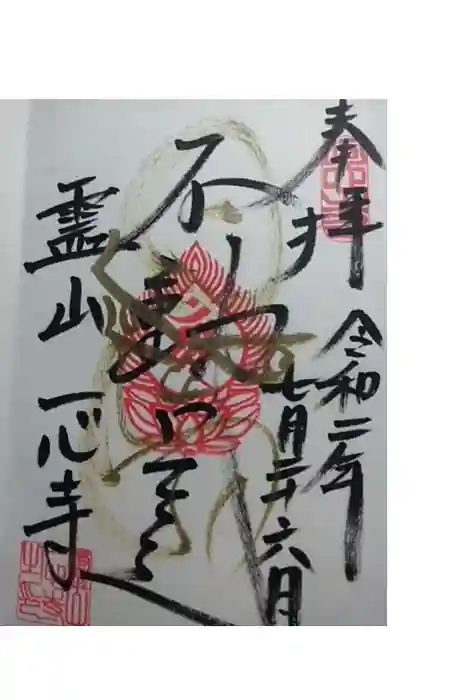 奉拝
令和二年
七月二十六日
不動明王
霊山 一心寺